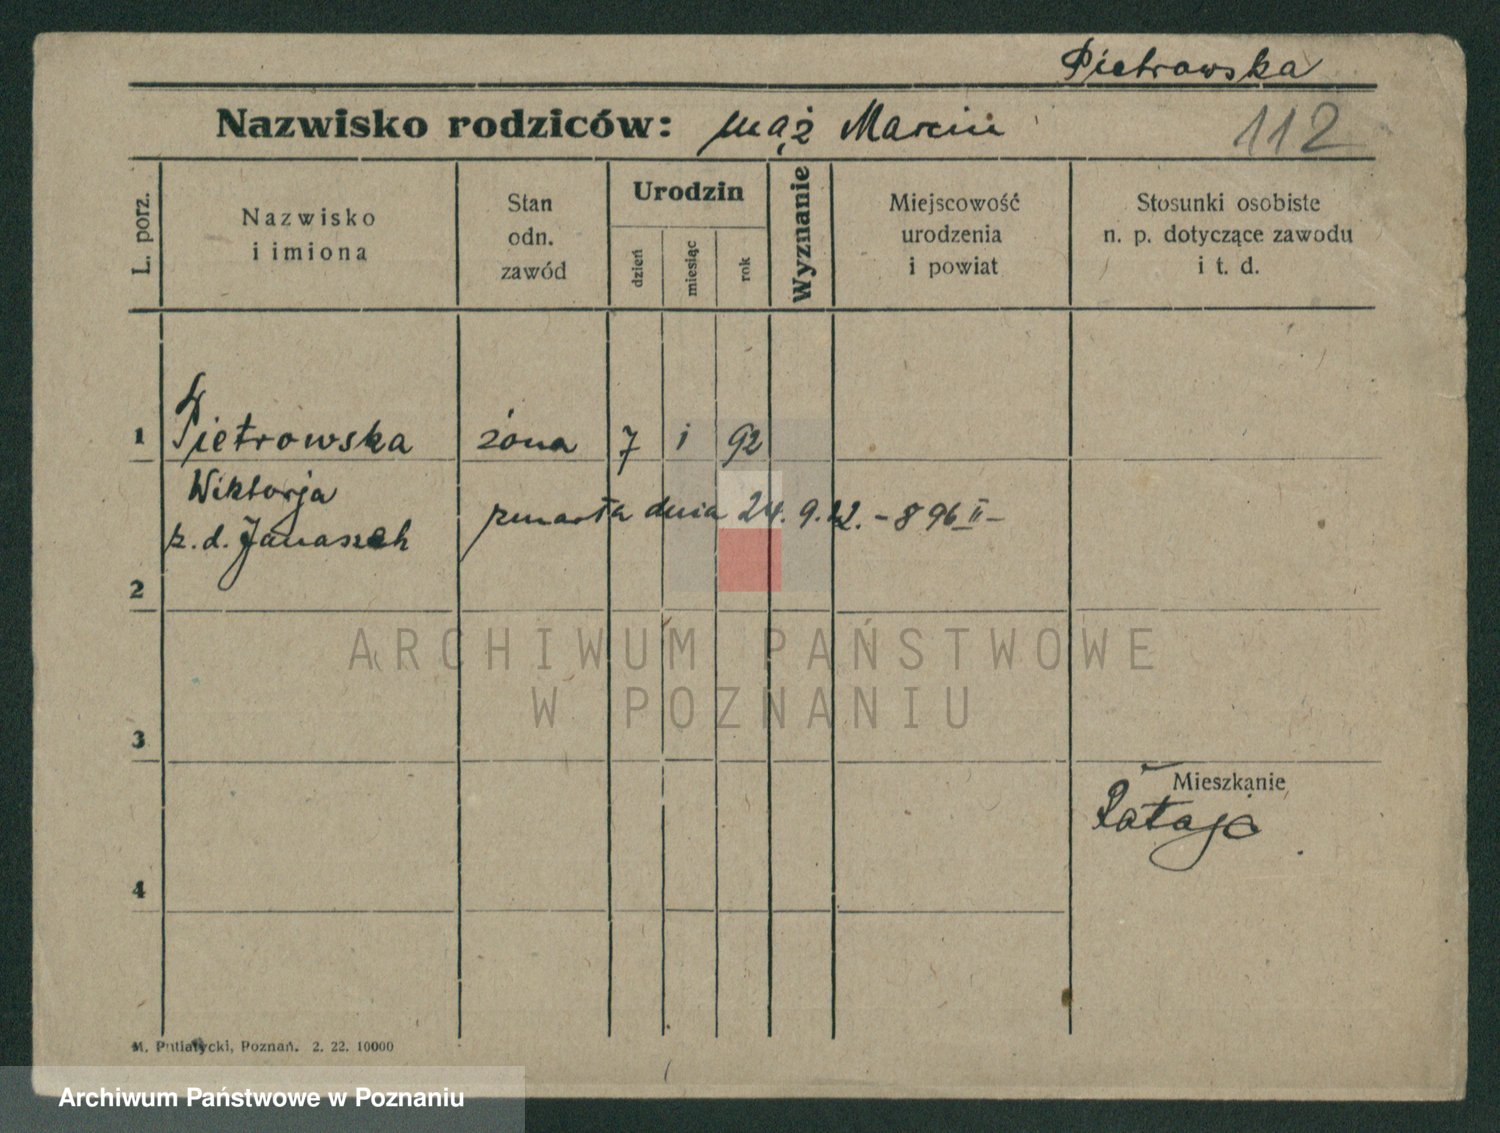 Pietrowska
Nazwisko rodziców: mąż Marcin
112
L. porz.
Nazwisko
i imiona
Stan
odn.
zawód
Urodzin
dzień
miesiąc
rok
Wyznanie
Miejscowość
urodzenia
i powiat
Stosunki osobiste
n. p. dotyczące zawodu
i t. d.
1
Pietrowska żona 7 i 92
Wiktorja
z. d. Janaszek
zmarła dnia 24. 9. 22. - 896 II -
2
3
4
Mieszkanie
Rataje
M. Putiatycki, Poznań. 2. 22. 10000
ARCHIWUM PAŃSTWOWE
W POZNANIU
Archiwum Państwowe w Poznaniu